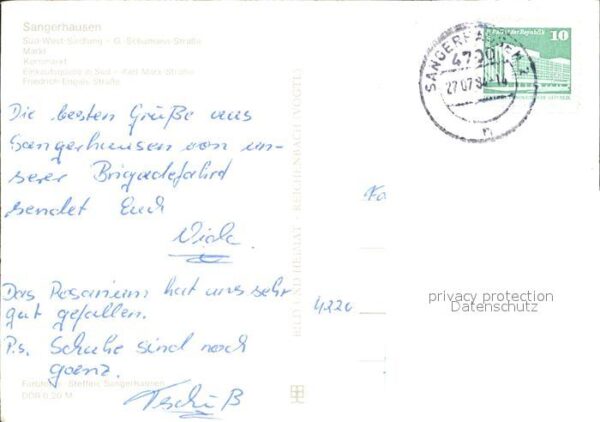 Sangerhausen
Süd-West-Siedlung - G.-Schumann-Straße
Markt
Kornmarkt
Einkaufspassage in Süd - Karl-Marx-Straße
Friedrich-Engels-Straße
Die besten Grüße aus
Sangerhausen von un-
serer Brigadefahrt
sendet Euch
Viola
Das Rosarium hat uns sehr
gut gefallen.
P.s. Schuhe sind noch
ganz.
Farbfoto: Steffen, Sangerhausen
DDR 0,20 M
BILD UND HEIMAT · REICHENBACH (VOGTL)
SANGERHAUSEN
4700
27.07.8
n
10
4220
privacy protection
Datenschutz